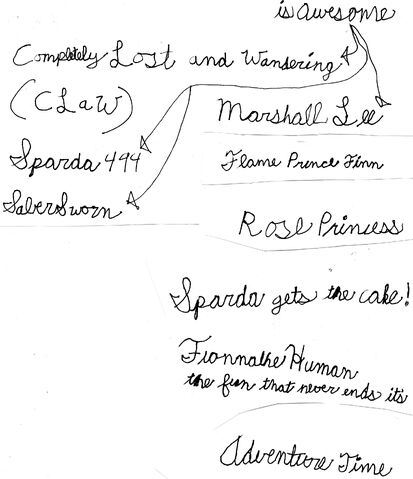 is awesome
Completely Lost and Wandering
(CLaW)
Marshall Lee
Sparda 494
Flame Prince Finn
SaberSworn
Rose Princess
Sparda gets the cake!
Fionnathe Human
the fun that never ends its
Adventure Time